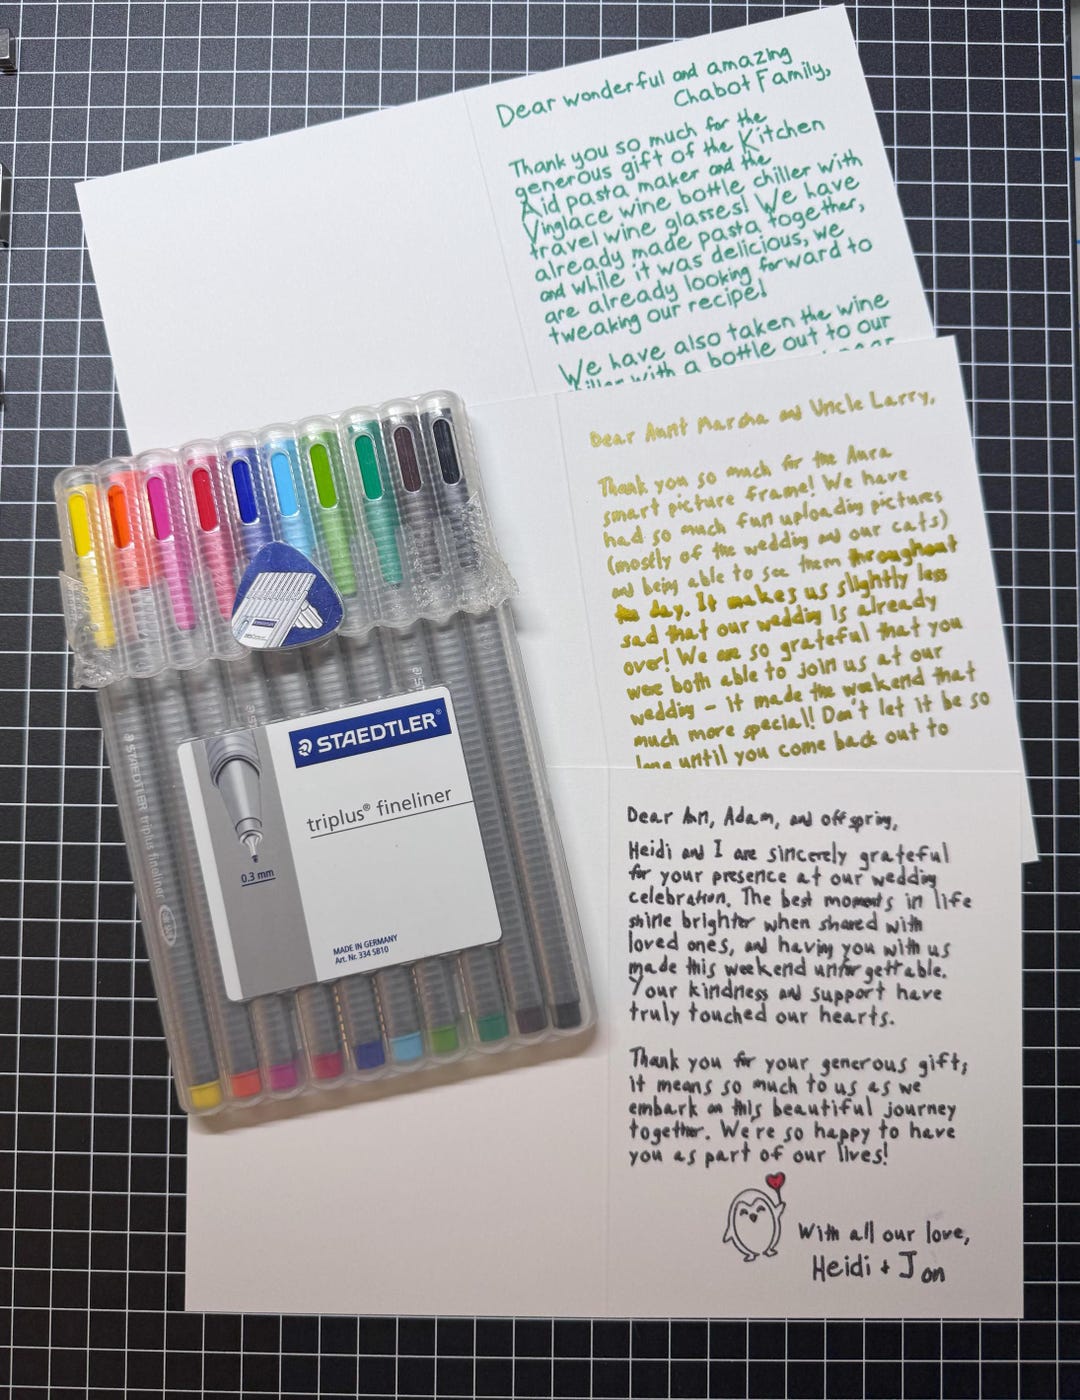 Dear wonderful and amazing
Chabot Family,
Thank you so much for the
generous gift of the Kitchen
Aid pasta maker and the
Vinglace wine bottle chiller with
travel wine glasses! We have
already made pasta together,
and while it was delicious, we
are already looking forward to
tweaking our recipe!
We have also taken the wine
with a bottle out to our
Dear Aunt Marsha and Uncle Larry,
Thank you so much for the Aura
smart picture frame! We have
had so much fun uploading pictures
(mostly of the wedding and our cats)
and being able to see them throughout
the day. It makes us slightly less
sad that our wedding is already
over! We are so grateful that you
were both able to join us at our
wedding – it made the weekend that
much more special! Don't let it be so
long until you come back out to
Dear Ann, Adam, and offspring,
Heidi and I are sincerely grateful
for your presence at our wedding
celebration. The best moments in life
shine brighter when shared with
loved ones, and having you with us
made this weekend unforgettable.
Your kindness and support have
truly touched our hearts.
Thank you for your generous gift;
it means so much to us as we
embark on this beautiful journey
together. We're so happy to have
you as part of our lives!
With all our love,
Heidi + Jon
STAEDTLER®
triplus® fineliner
0.3 mm
MADE IN GERMANY
Art. Nr. 334 SB10
STAEDTLER triplus fineliner